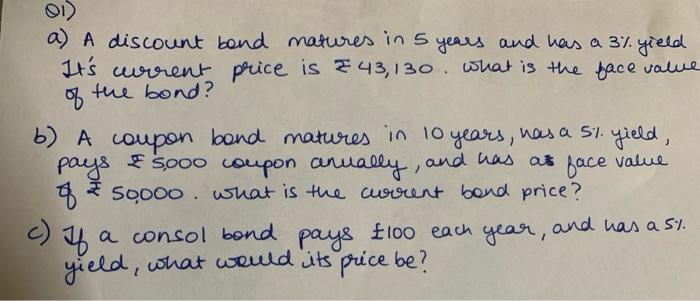 Q1)
a) A discount bond matures in 5 years and has a 3% yield
It's current price is ₹ 43,130. What is the face value
of the bond?
b) A coupon bond matures in 10 years, has a 5% yield,
pays ₹ 5,000 coupon anually, and has as face value
of ₹ 50,000. What is the current bond price?
c) If a consol bond pays £100 each year, and has a 5%
yield, what would its price be?